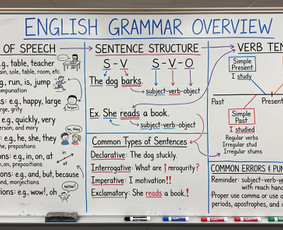 ENGLISH GRAMMAR OVERVIEW
OF SPEECH
g., table, teacher
ain, sole, table, room, etc.
.g., run, is, jump
s: e.g., happy, large
arge, grung
e.g., quickly, very
erson, and many
e.g., he, she, they
ons: e.g., in, on, at
on, on, prepositions
ons: e.g., and, but, because
and, monjections
ons: e.g., wow!, oh
oh!
wow!
SENTENCE STRUCTURE
S - V
S - V - O
The dog barks.
subject-verb-object
Ex. She reads a book.
subject-verb-object
Common Types of Sentences
Declarative: The dog stuckly.
Interrogative: What are mroqurity?
Imperative: I motivation!!
Exclamatory: She reads a book!
VERB TEN
Simple
Present
I study
Past
Present
Simple
Past
I studied
Regular verbs
Irregular stud
Irregular stums
COMMON ERRORS & PUN
Reminder: subject-verb-o
with reach han
Proper use comma or use c
periods, apostrophes, and c